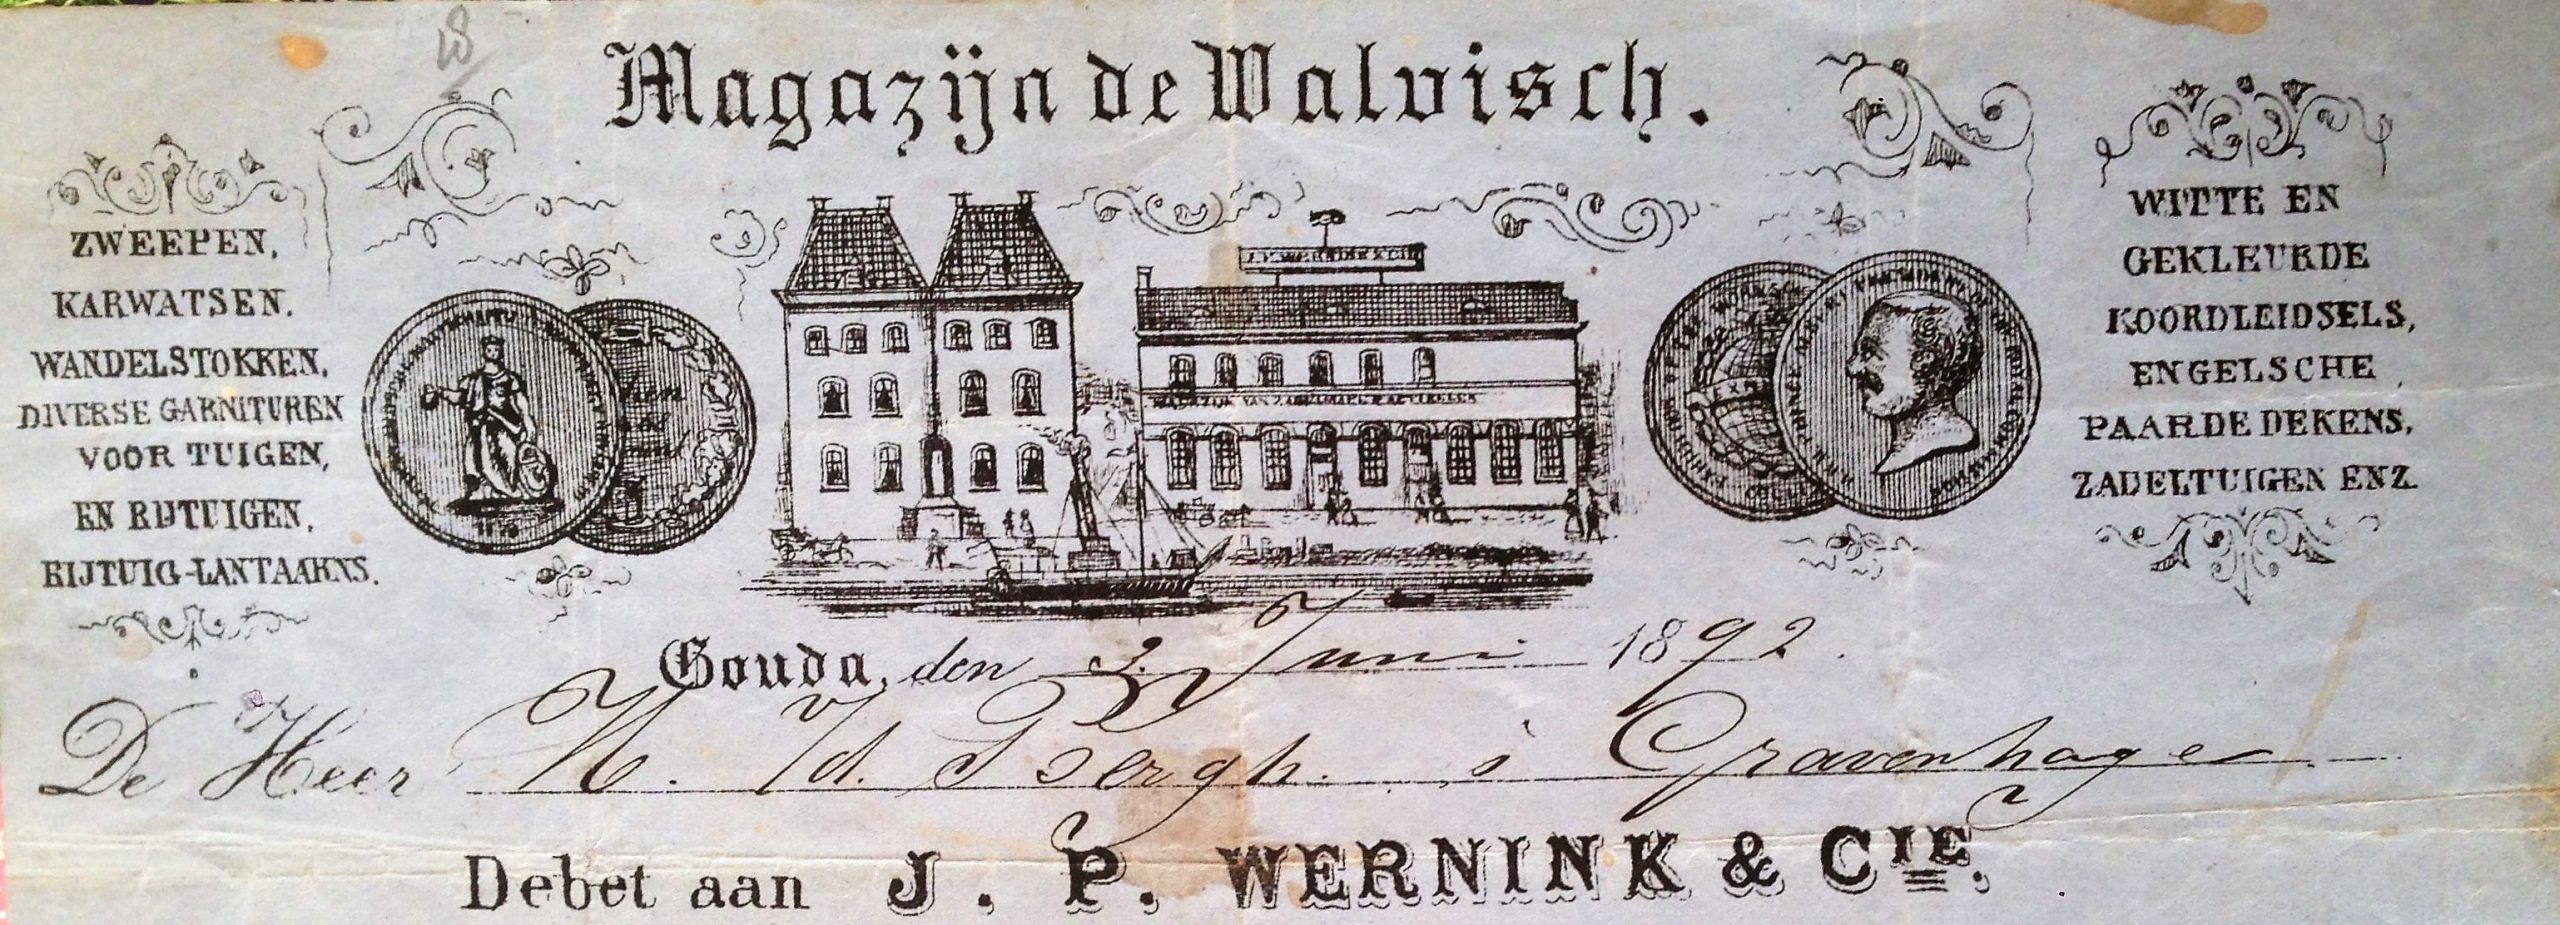 Magazijn de Walvisch.
ZWEEPEN,
KARWATSEN.
WANDELSTOKKEN,
DIVERSE GARNITUREN
VOOR TUIGEN,
EN RIJTUIGEN,
RIJTUIG-LANTAARNS.
J. P. WERNINK & CIE
MAGAZIJN VAN ZADELMAKERS ARTIKELEN
WITTE EN
GEKLEURDE
KOORDLEIDSELS,
ENGELSCHE
PAARDEDEKENS,
ZADELTUIGEN ENZ.
Gouda, den 3 Juni 1892.
De Heer H. Vd. Bergh. s Gravenhage
Debet aan J. P. WERNINK & CIE.